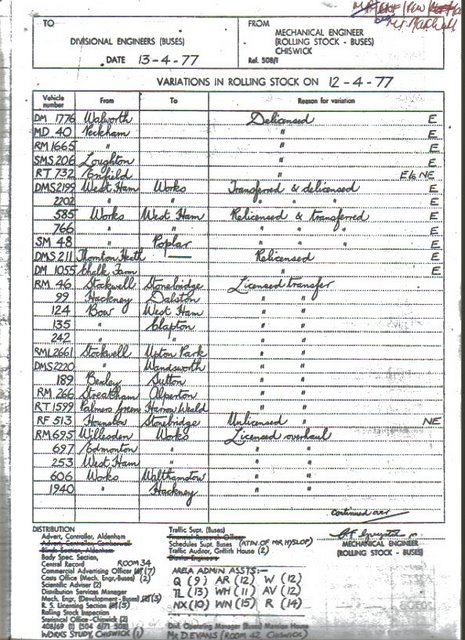 Mr Marshall
TO
DIVISIONAL ENGINEERS (BUSES)
DATE 13-4-77
FROM
MECHANICAL ENGINEER
(ROLLING STOCK - BUSES)
CHISWICK
Ref. 508/1
VARIATIONS IN ROLLING STOCK ON 12-4-77
Vehicle number From To Reason for variation
DM 1776 Walworth Delicensed E
MD 40 Peckham " E
RM 1665 " " E
SMS 206 Loughton " E
RT 732 Enfield " E to NE
DMS 2199 West Ham Works Transferred & delicensed E
2202 " " " " " E
585 Works West Ham Relicensed & transferred E
766 " " " " " E
SM 48 " Poplar " " " E
DMS 211 Thornton Heath — Relicensed E
DM 1055 Chalk Farm " E
RM 46 Stockwell Stonebridge Licensed transfer
99 Hackney Dalston " "
124 Bow West Ham " "
135 " Clapton " "
242 " " " "
RML 2661 Stockwell Upton Park " "
DMS 2220 " Wandsworth " "
189 Bexley Sutton " "
RM 266 Streatham Alperton " "
RT 1599 Palmers Green Harrow Weald " "
RF 513 Hounslow Stonebridge Unlicensed " NE
RM 695 Willesden Works Licensed overhaul
697 Edmonton " " "
253 West Ham " " "
606 Works Walthamstow " "
1940 " Hackney " "
continued over
MECHANICAL ENGINEER
(ROLLING STOCK - BUSES)
DISTRIBUTION
Advert. Controller, Aldenham
Body Spec. Section,
Central Record ROOM 34
Commercial Advertising Officer (7)
Costs Office (Mech. Engr.-Buses) (2)
Scientific Adviser (2)
Distribution Services Manager
Mech. Engr. (Development - Buses) (5)
R. S. Licensing Section (3)
Rolling Stock Inspection
Statistical Office - Chiswick (2)
408/69 (1) 504 6/71 508
WORKS STUDY, CHISWICK (1)
Traffic Supt. (Buses)
Financial Research Officer
Schedules Supt. Buses (ATTN. OF MR HYSLOP)
Traffic Auditor, Griffith House (2)
AREA ADMIN ASSTS:-
Q (9) AR (12) W (12)
TL (13) WH (11) AV (12)
NX (10) WN (15) R (14)
Divl. Operating Manager (Buses) Mansion House
MR D. EVANS (ROOM 42 CHISWICK)